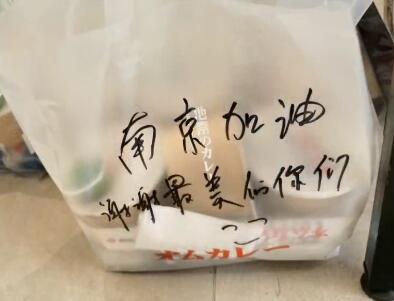 南京加油
谢谢最美的你们
オムカレー